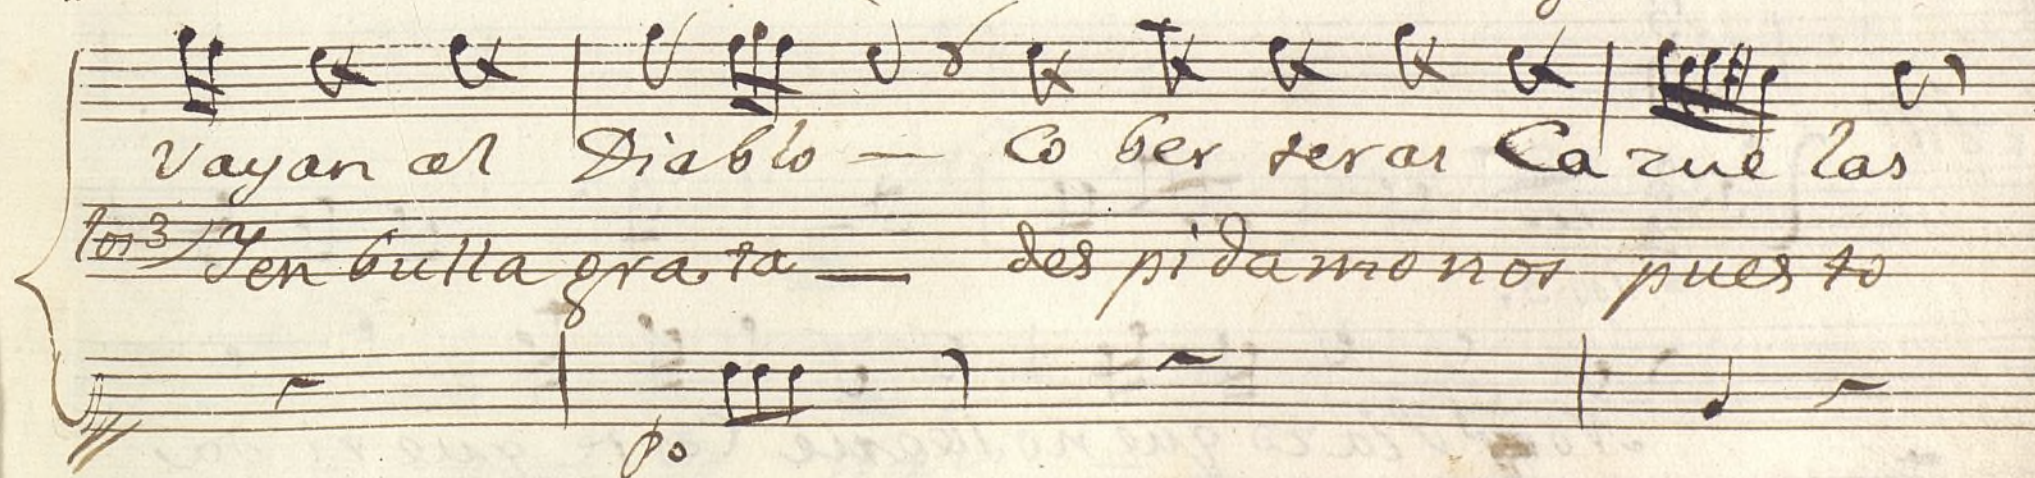 vayan al Diablo — Co ber teras Ca zue las
los 3) Y en bulla gra ta — des pi damo nos pues to
po